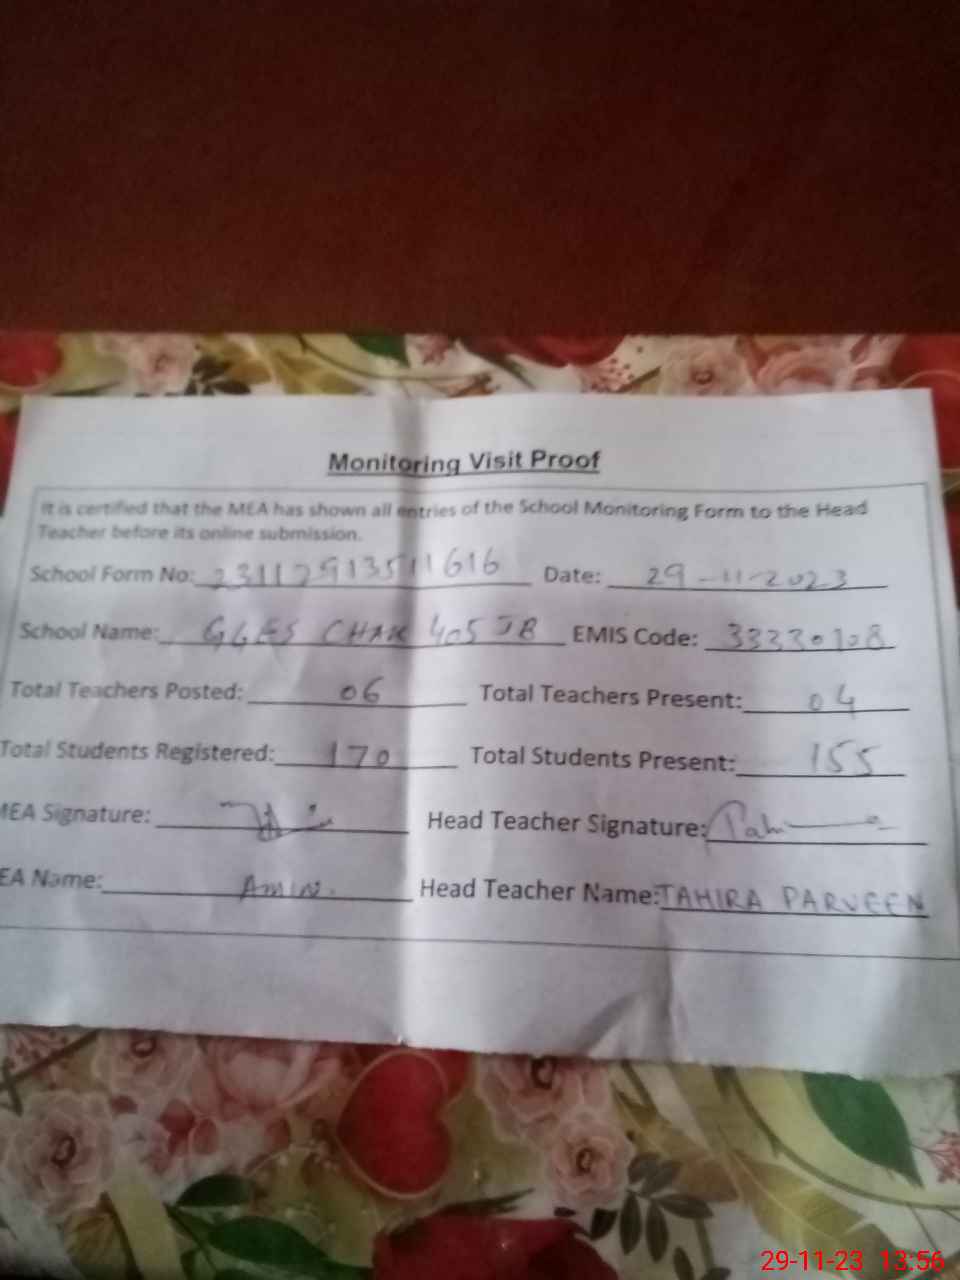 Monitoring Visit Proof
It is certified that the MEA has shown all entries of the School Monitoring Form to the Head
Teacher before its online submission.
School Form No: 23112913511616 Date: 29-11-2023
School Name: GGES CHAK 405 JB EMIS Code: 33330108
Total Teachers Posted: 06 Total Teachers Present: 04
Total Students Registered: 170 Total Students Present: 155
MEA Signature: Head Teacher Signature:
EA Name: AMIN. Head Teacher Name: TAHIRA PARVEEN
29-11-23 13:56